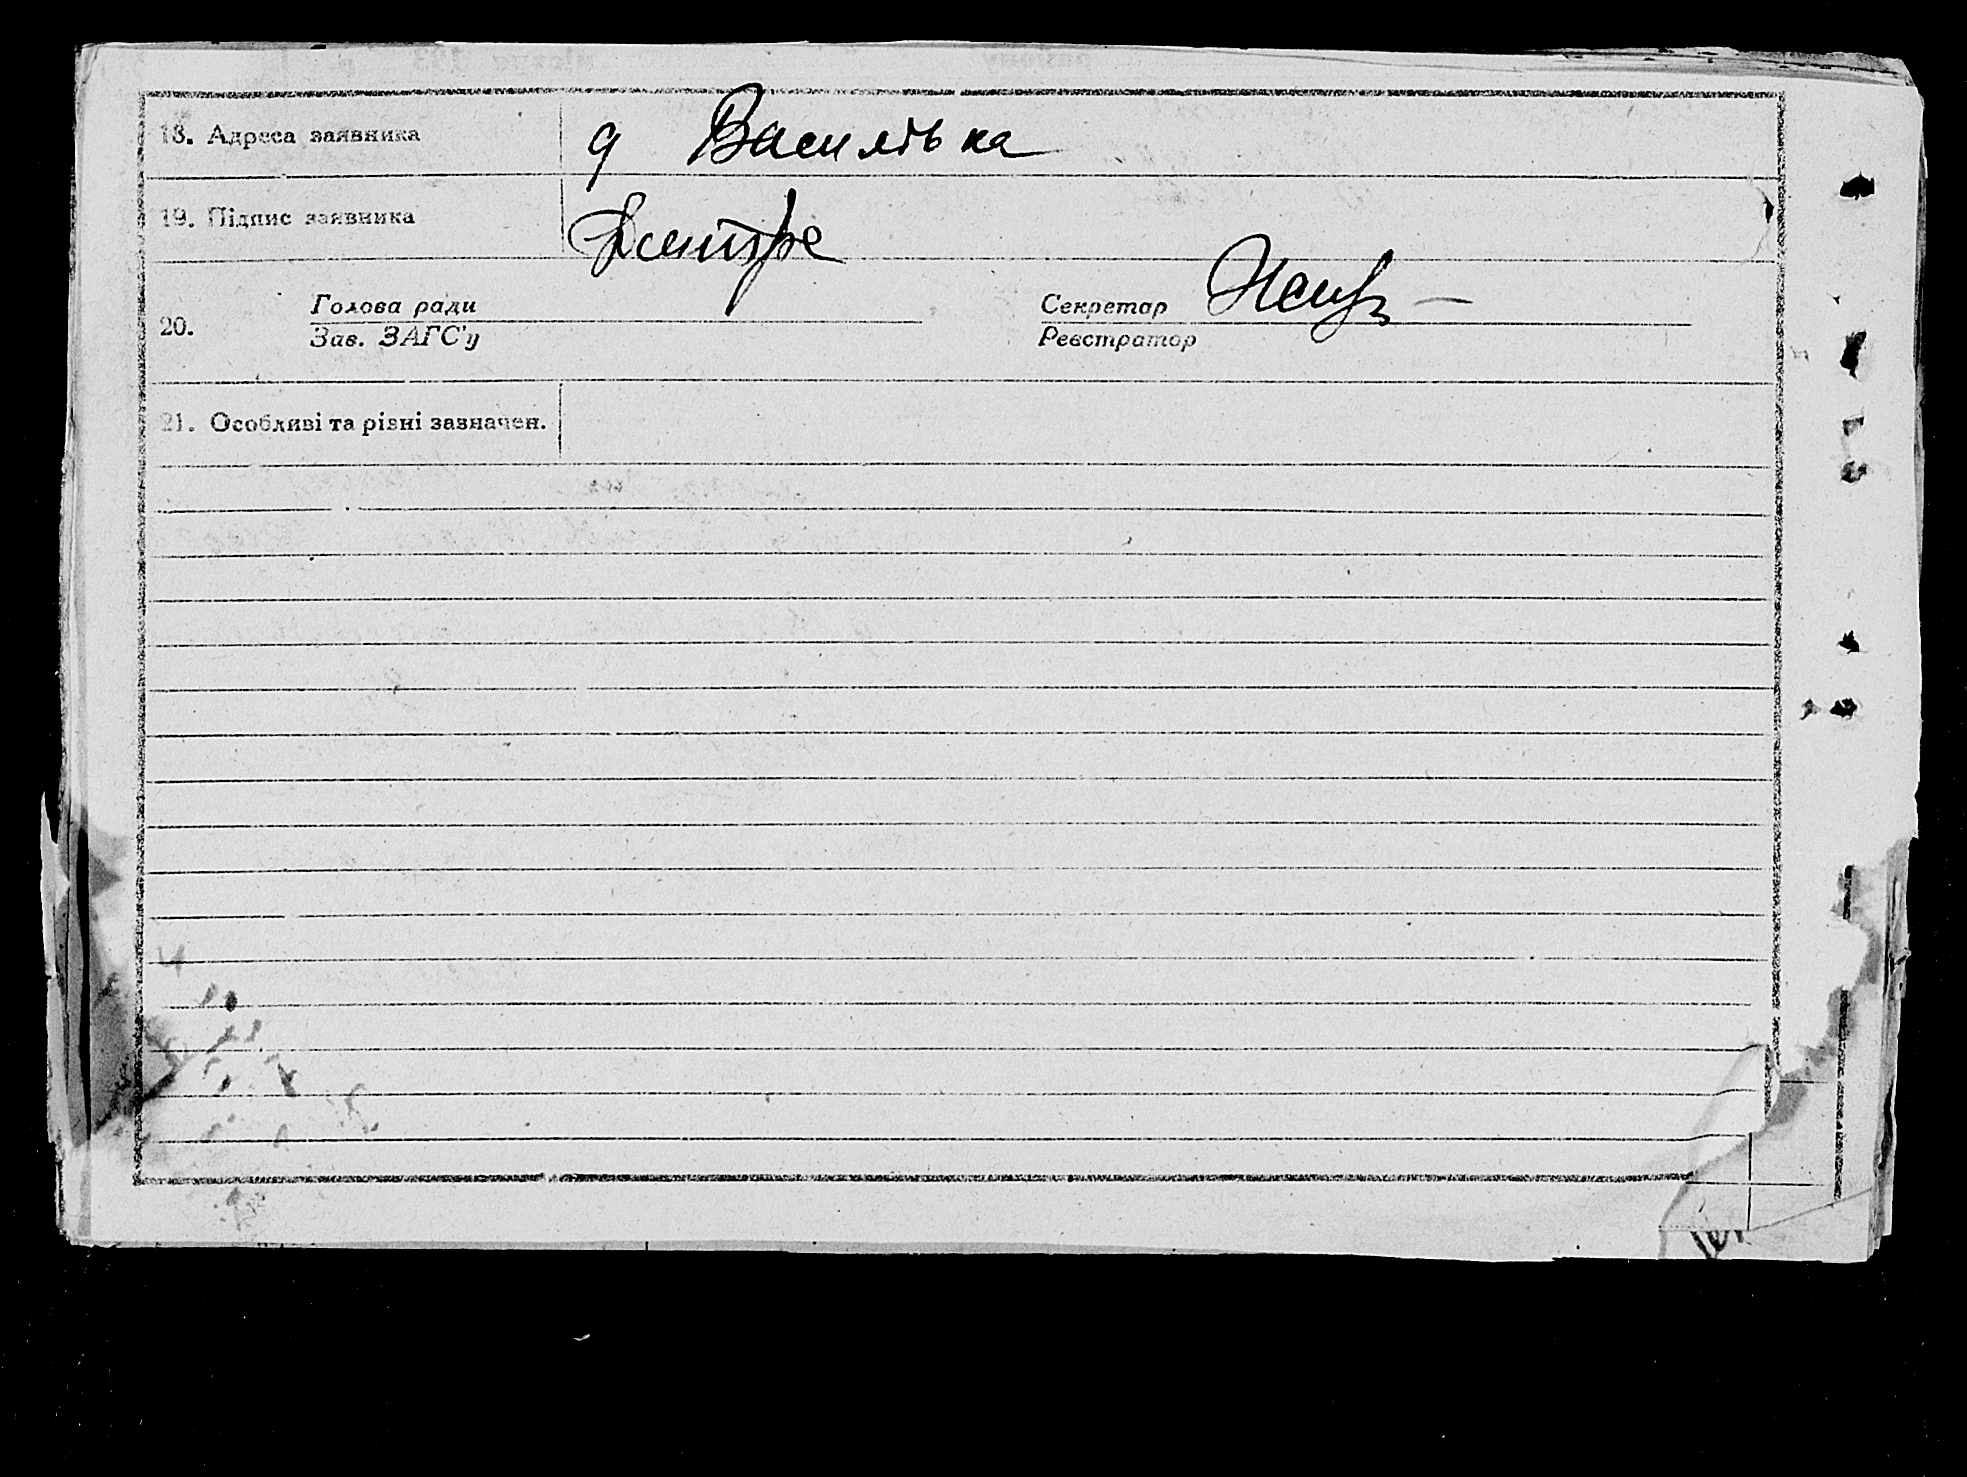 18. Адреса заявника д Василівка
19. Підпис заявника
20. Голова ради Секретар
Зав. ЗАГС'у Реєстратор
21. Особливі та різні зазначен.